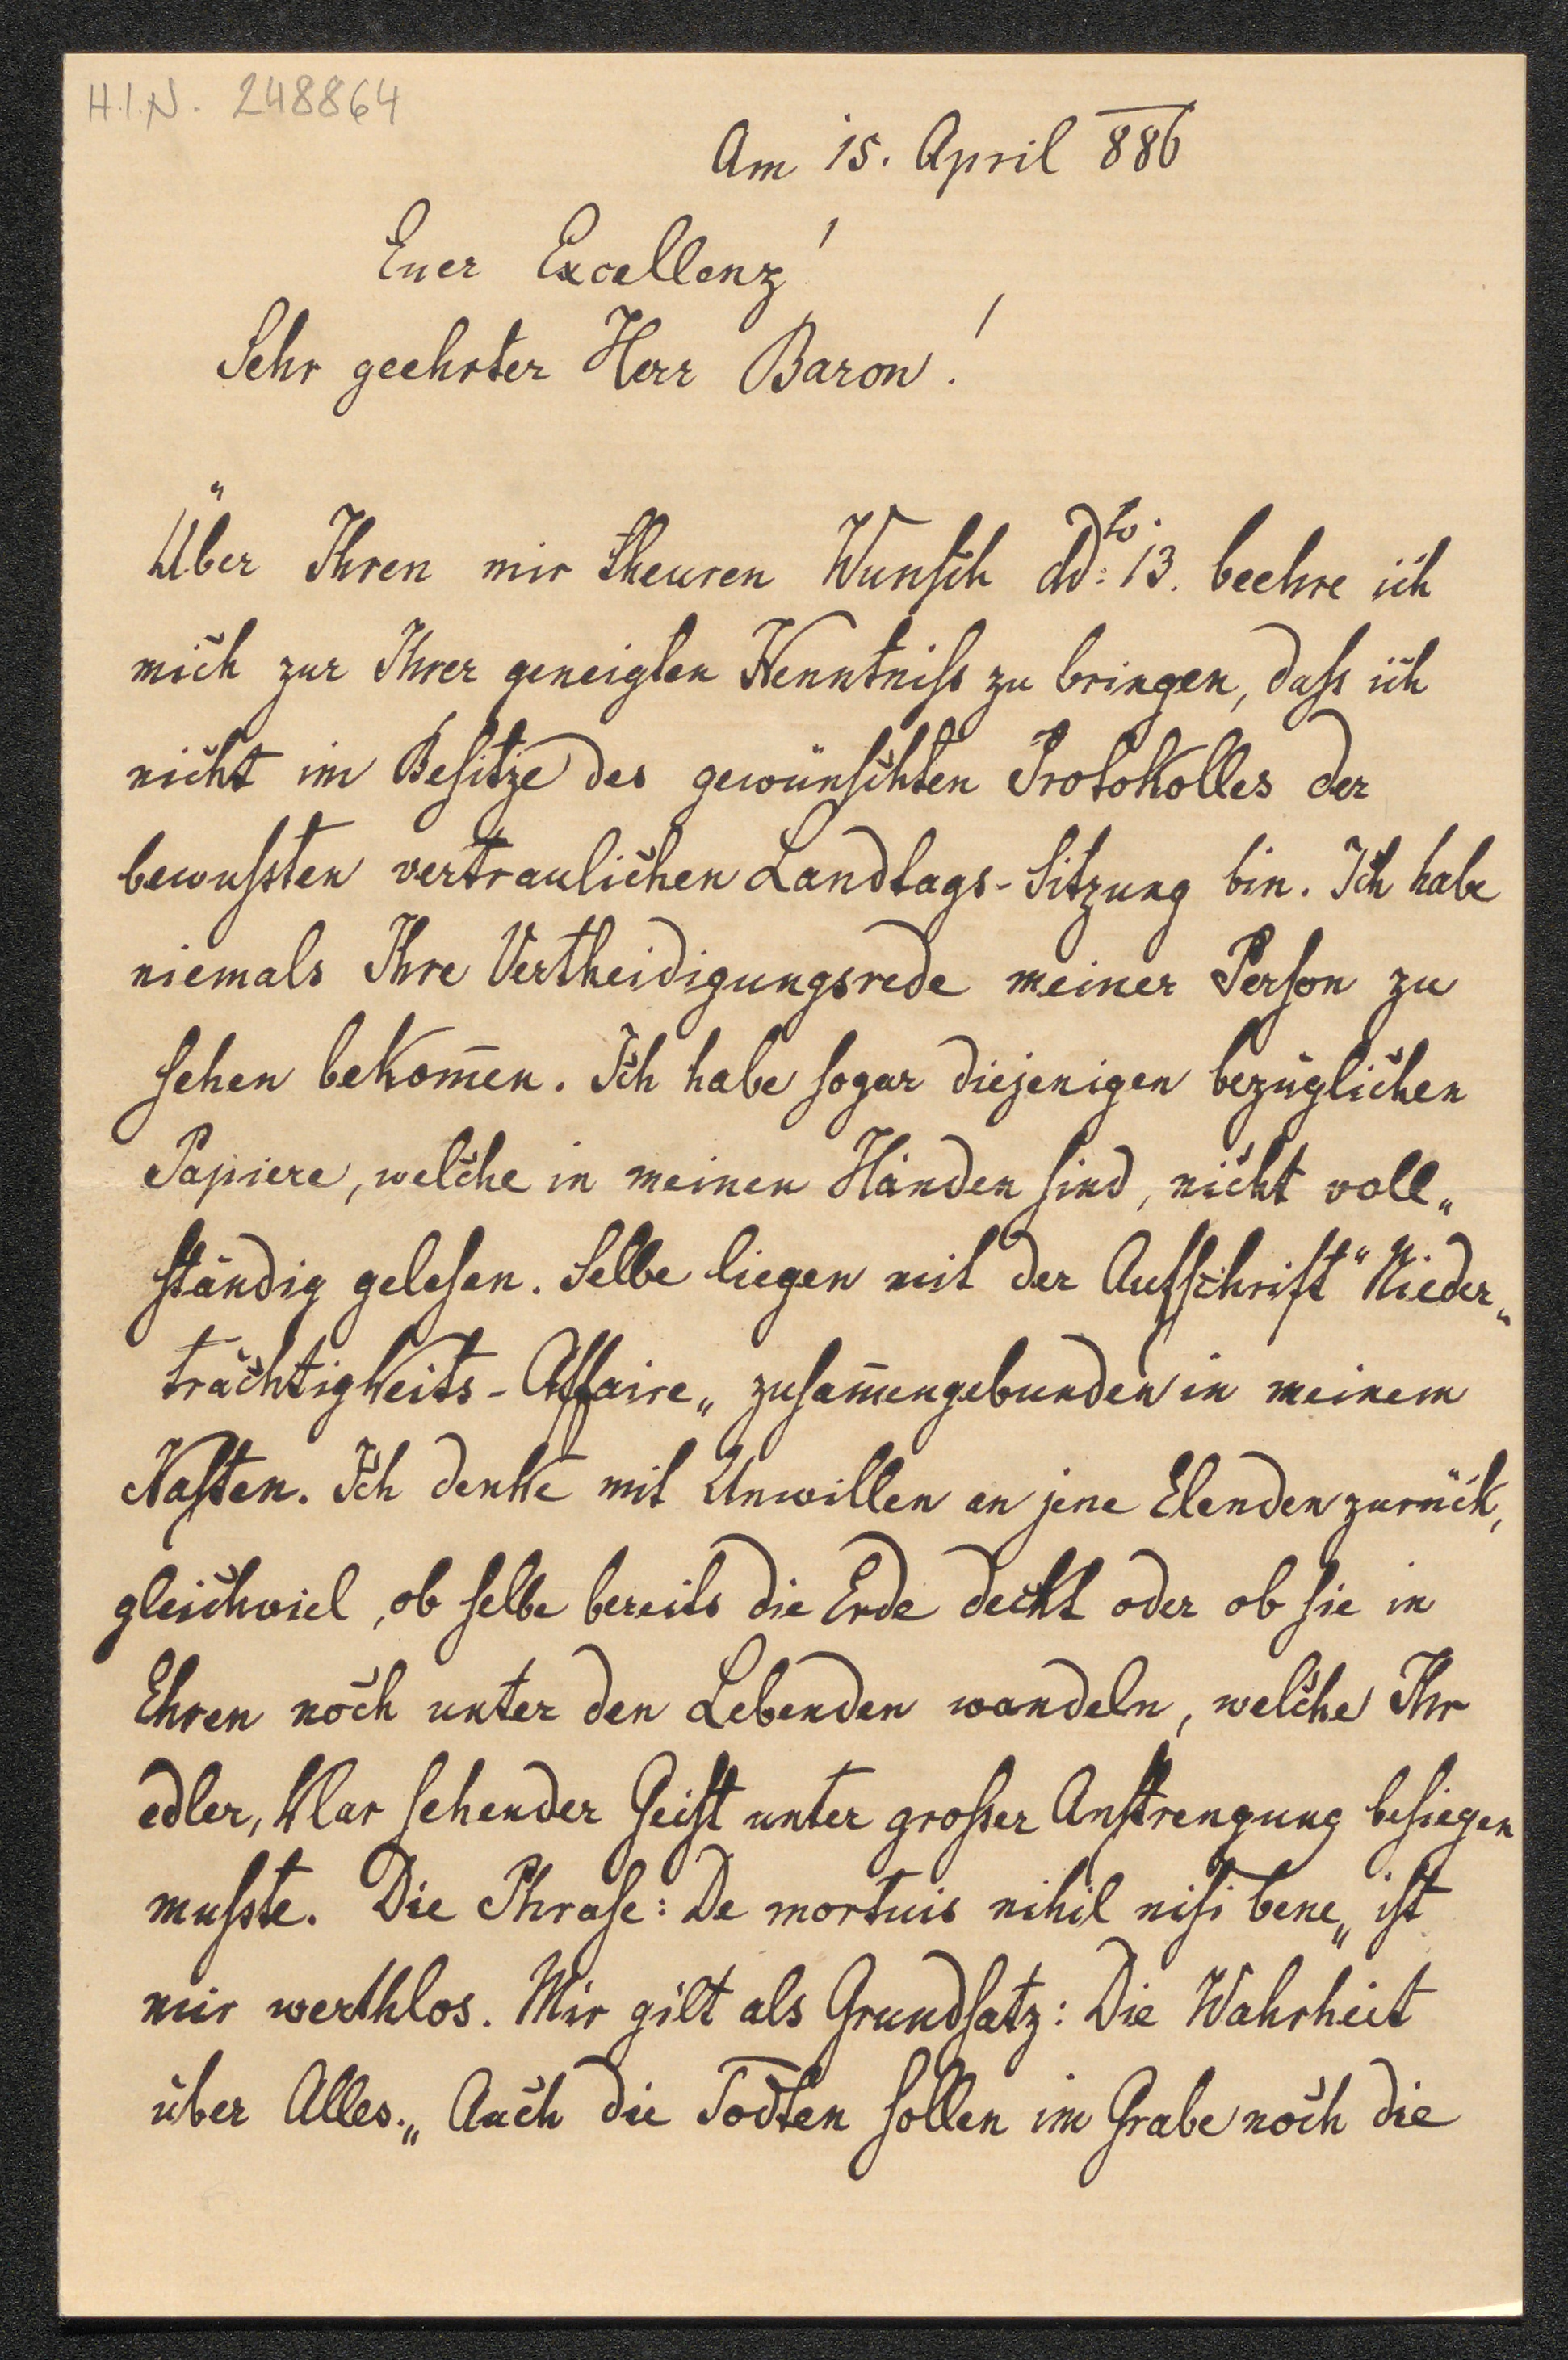 H.I.N. 248864
Am 15. April 886
Euer Excellenz!
Sehr geehrter Herr Baron!
Über Ihren mir theuren Wunsch ddto. 13. beehre ich
mich zur Ihrer geneigten Kenntniss zu bringen, dass ich
nicht im Besitze des gewünschten Protokolles der
bewussten vertraulichen Landtags-Sitzung bin. Ich habe
niemals Ihre Vertheidigungsrede meiner Person zu
sehen bekom̅en. Ich habe sogar diejenigen bezüglichen
Papiere, welche in meinen Händen sind, nicht voll„
ständig gelesen. Selbe liegen mit der Aufschrift "Nieder„
trächtigkeits-Affaire„ zusam̅engebunden in meinem
Kasten. Ich denke mit Unwillen an jene Elenden zurück,
gleichviel, ob selbe bereits die Erde deckt oder ob sie in
Ehren noch unter den Lebenden wandeln, welche Ihr
edler, klar sehender Geist unter grosser Anstrengung besiegen
musste. Die Phrase: De mortuis nihil nisi bene„ ist
mir werthlos. Mir gilt als Grundsatz: Die Wahrheit
über Alles.„ Auch die Todten sollen im Grabe noch die